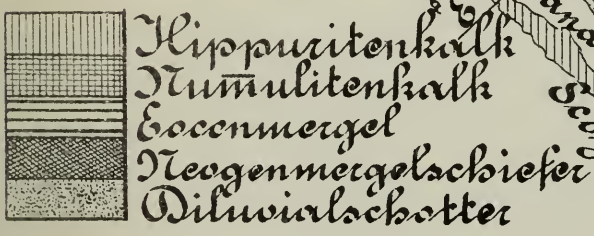 Hippuritenkalk
Num̅ulitenkalk
Eocenmergel
Neogenmergelschiefer
Diluvialschotter